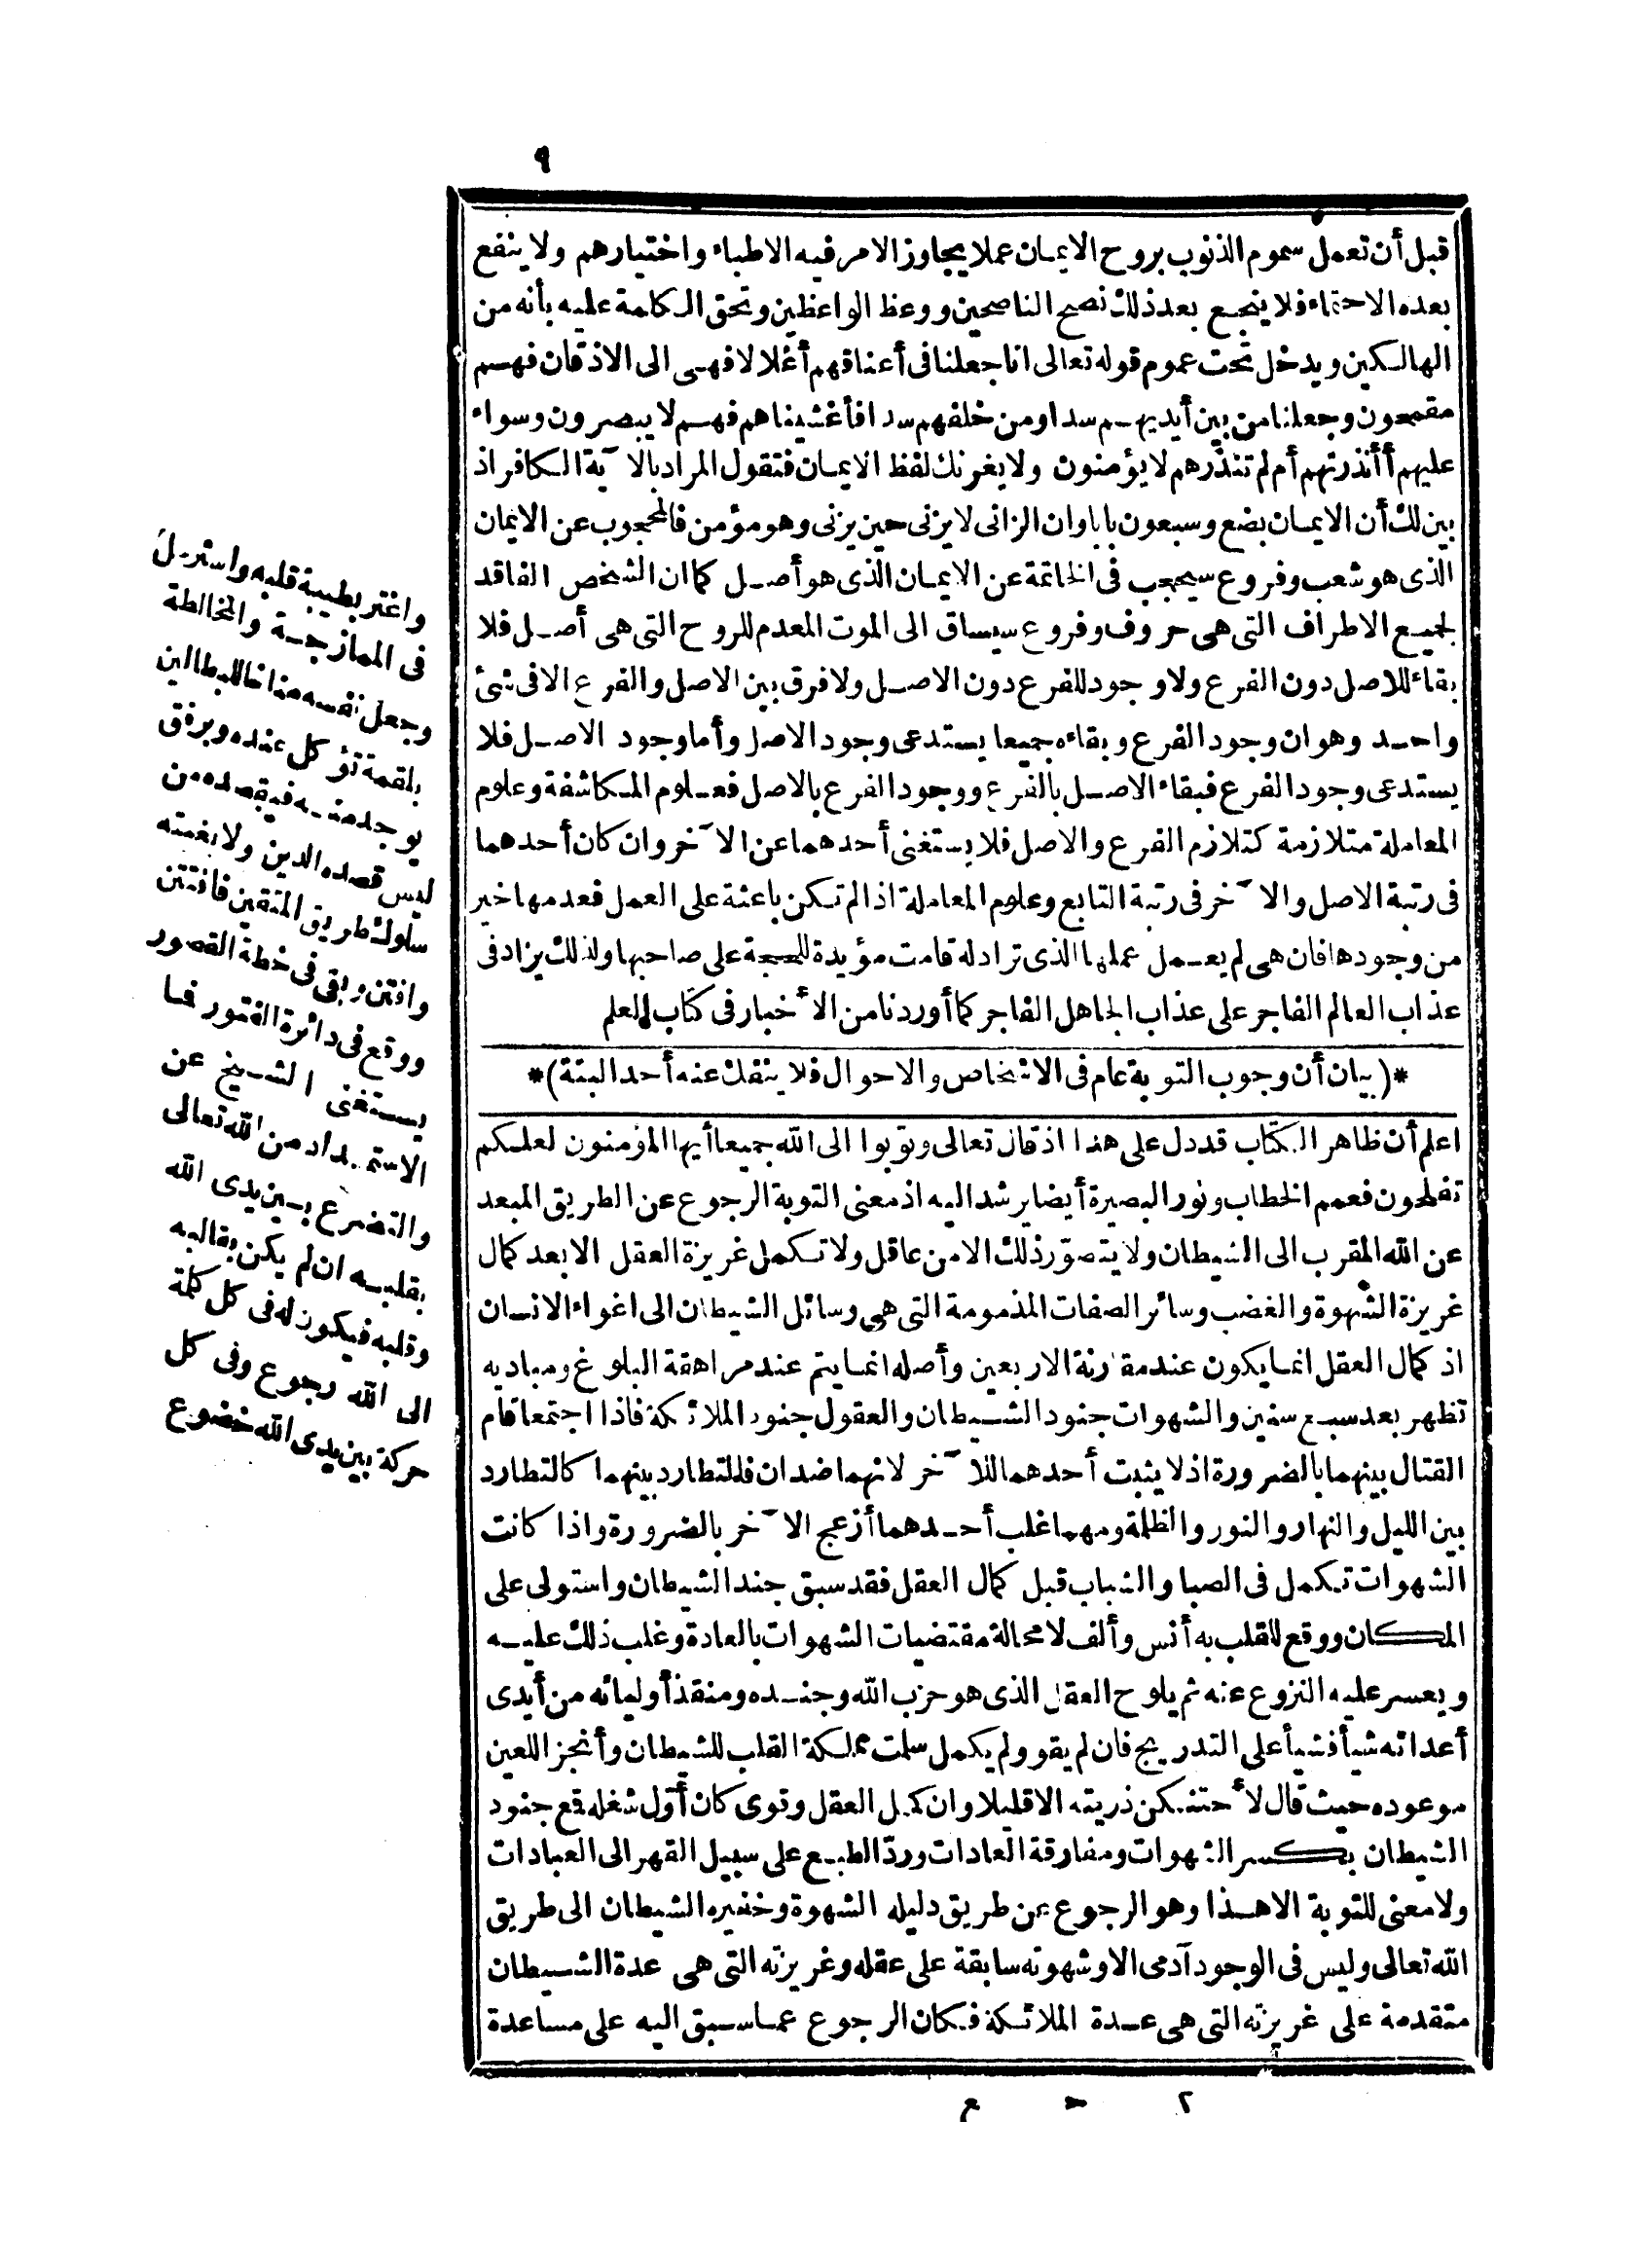 ٩
قبل أن تعمل سموم الذنوب بروح الايمان عملا يجاوز الامر فيه الاطباء واختيارهم ولا ينفع
بعده الاحتماء فلا ينجع بعد ذلك نصح الناصحين ووعظ الواعظين وتحق الكلمة عليه بأنه من
الهالكين ويدخل تحت عموم قوله تعالى انا جعلنا فى أعناقهم أغلالا فهى الى الاذقان فهم
مقمحون وجعلنا من بين أيديهم سدا ومن خلفهم سدا فأغشيناهم فهم لا يبصرون وسواء
عليهم أأنذرتهم أم لم تنذرهم لا يؤمنون ولا يغرنك لفظ الايمان فتقول المراد بالآية الكافر اذ
بين لك أن الايمان بضع وسبعون بابا وان الزانى لا يزنى حين يزنى وهو مؤمن فالمحجوب عن الايمان
الذى هو شعب وفروع سيحجب فى الخاتمة عن الايمان الذى هو أصل كما ان الشخص الفاقد
لجميع الاطراف التى هى حروف وفروع سيساق الى الموت المعدم للروح التى هى أصل فلا
بقاء للاصل دون الفرع ولا وجود للفرع دون الاصل ولا فرق بين الاصل والفرع الا فى شئ
واحد وهو ان وجود الفرع وبقاءه جميعا يستدعى وجود الاصل وأما وجود الاصل فلا
يستدعى وجود الفرع فبقاء الاصل بالفرع ووجود الفرع بالاصل فعلوم المكاشفة وعلوم
المعاملة متلازمة كتلازم الفرع والاصل فلا يستغنى أحدهما عن الآخر وان كان أحدهما
فى رتبة الاصل والآخر فى رتبة التابع وعلوم المعاملة اذا لم تكن باعثة على العمل فعدمها خير
من وجودها فان هى لم يعمل عملها الذى تراد له قامت مؤيدة للحجة على صاحبها ولذلك يزاد فى
عذاب العالم الفاجر على عذاب الجاهل الفاجر كما أوردنا من الأخبار فى كتاب العلم
*(بيان أن وجوب التوبة عام فى الاشخاص والاحوال فلا ينفك عنه أحد البتة)*
اعلم أن ظاهر الكتاب قد دل على هذا اذ قال تعالى وتوبوا الى الله جميعا أيها المؤمنون لعلكم
تفلحون فعمم الخطاب ونور البصيرة أيضا يرشد اليه اذ معنى التوبة الرجوع عن الطريق المبعد
عن الله المقرب الى الشيطان ولا يتصوّر ذلك الا من عاقل ولا تكمل غريزة العقل الا بعد كمال
غريزة الشهوة والغضب وسائر الصفات المذمومة التى هى وسائل الشيطان الى اغواء الانسان
اذ كمال العقل انما يكون عند مقارنة الاربعين وأصله انما يتم عند مراهقة البلوغ ومباديه
تظهر بعد سبع سنين والشهوات جنود الشيطان والعقول جنود الملائكة فاذا اجتمعا قام
القتال بينهما بالضرورة اذ لا يثبت أحدهما للآخر لانهما ضدان فالتطارد بينهما كالتطارد
بين الليل والنهار والنور والظلمة ومهما غلب أحدهما أزعج الآخر بالضرورة واذا كانت
الشهوات تكمل فى الصبا والشباب قبل كمال العقل فقد سبق جند الشيطان واستولى على
المكان ووقع للقلب به أنس وألف لا محالة مقتضيات الشهوات بالعادة وغلب ذلك عليه
ويعسر عليه النزوع عنه ثم يلوح العقل الذى هو حزب الله وجنده ومنقذ أوليائه من أيدى
أعدائه شيأ فشيأ على التدريج فان لم يقو ولم يكمل سلمت مملكة القلب للشيطان وأنجز اللعين
موعوده حيث قال لأحتنكن ذريته الا قليلا وان كمل العقل وقوى كان أوّل شغله قمع جنود
الشيطان بكسر الشهوات ومفارقة العادات وردّ الطبع على سبيل القهر الى العبادات
ولا معنى للتوبة الا هذا وهو الرجوع عن طريق دليله الشهوة وخفيره الشيطان الى طريق
الله تعالى وليس فى الوجود آدمى الا وشهوته سابقة على عقله وغريزته التى هى عدة الشيطان
متقدمة على غريزته التى هى عدة الملائكة فكان الرجوع عما سبق اليه على مساعدة
واغتر بطيبة قلبه واسترسل
فى الممازجة والمخالطة
وجعل نفسه مناخا للبطالين
بلقمة تؤكل عنده وبرفق
يوجد منه فيقصده من
ليس قصده الدين ولا بغيته
سلوك طريق المتقين فافتتن
وافتتن وبقى فى خطة القصور
ووقع فى دائرة الفتور فما
يستغنى الشيخ عن
الاستمداد من الله تعالى
والتضرع بين يدى الله
بقلبه ان لم يكن بقالبه
وقلبه فيكون له فى كل كلمة
الى الله رجوع وفى كل
حركة بين يدى الله خضوع
٢ ح ع